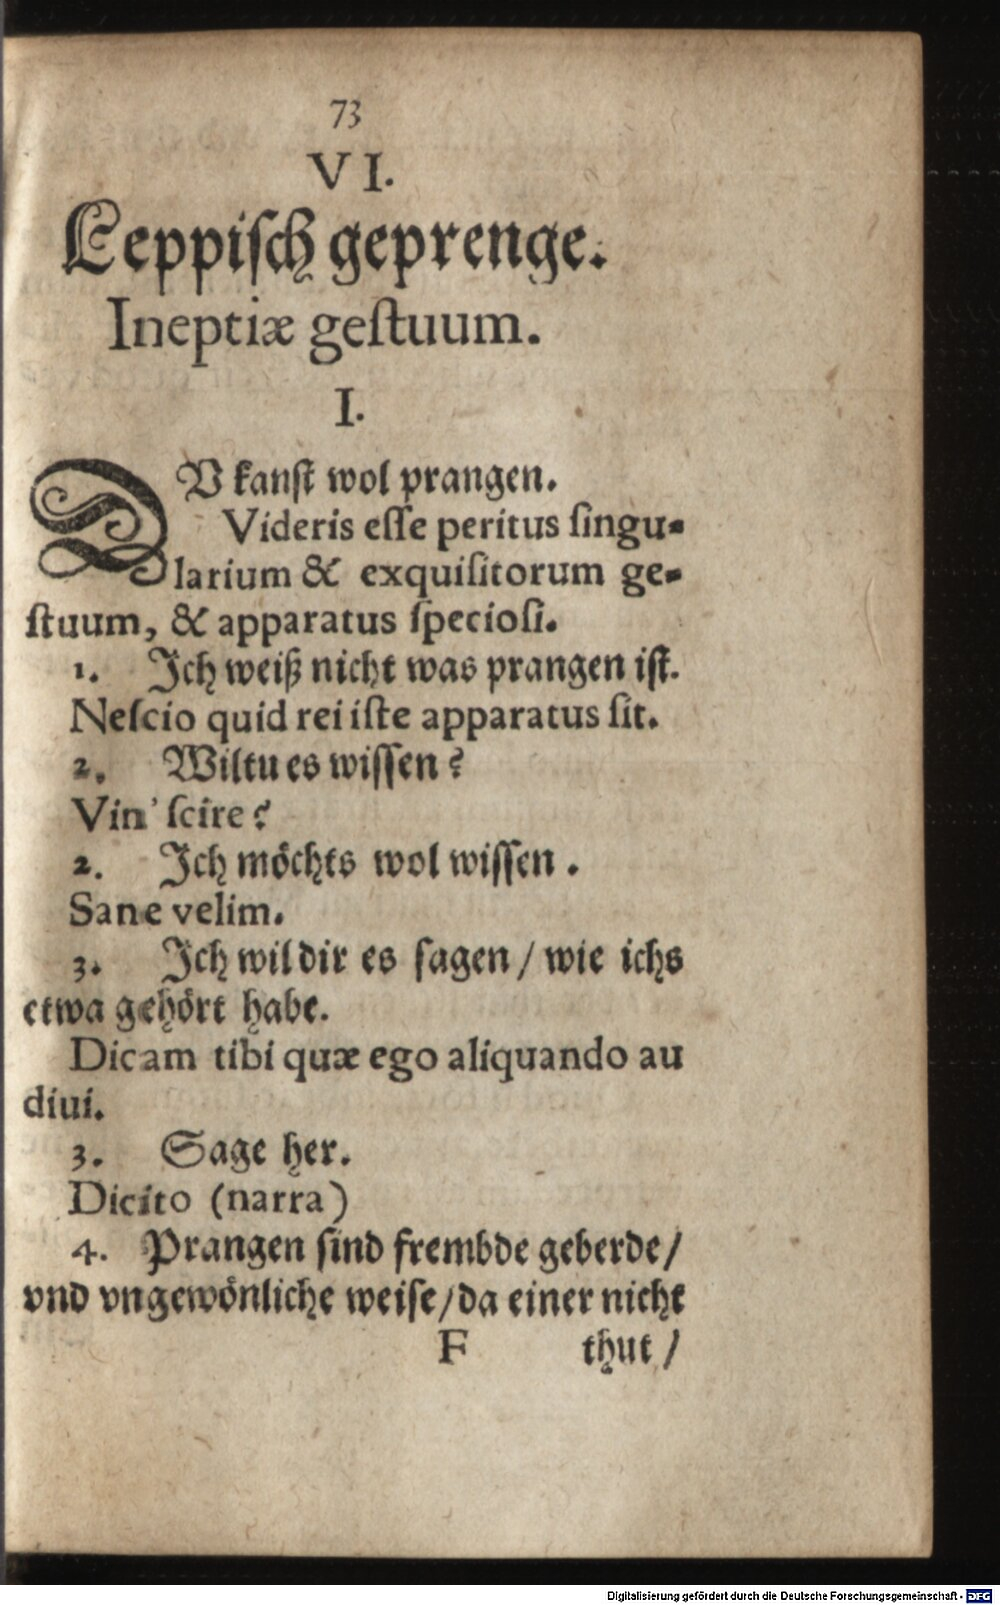 73
VI.
Leppiſch geprenge.
Ineptiæ geſtuum.
I.
DV kanſt wol prangen.
Videris eſſe peritus ſingu-
larium & exquiſitorum ge-
ſtuum, & apparatus ſpecioſi.
1. Ich weiß nicht was prangen iſt.
Neſcio quid rei iſte apparatus ſit.
2. Wiltu es wiſſen?
Vin' ſcire?
2. Ich möchts wol wiſſen.
Sane velim.
3. Ich wil dir es ſagen / wie ichs
etwa gehört habe.
Dicam tibi quæ ego aliquando au
diui.
3. Sage her.
Dicito (narra)
4. Prangen ſind frembde geberde /
vnd vngewönliche weiſe / da einer nicht
F thut /
Digitalisierung gefördert durch die Deutsche Forschungsgemeinschaft - DFG